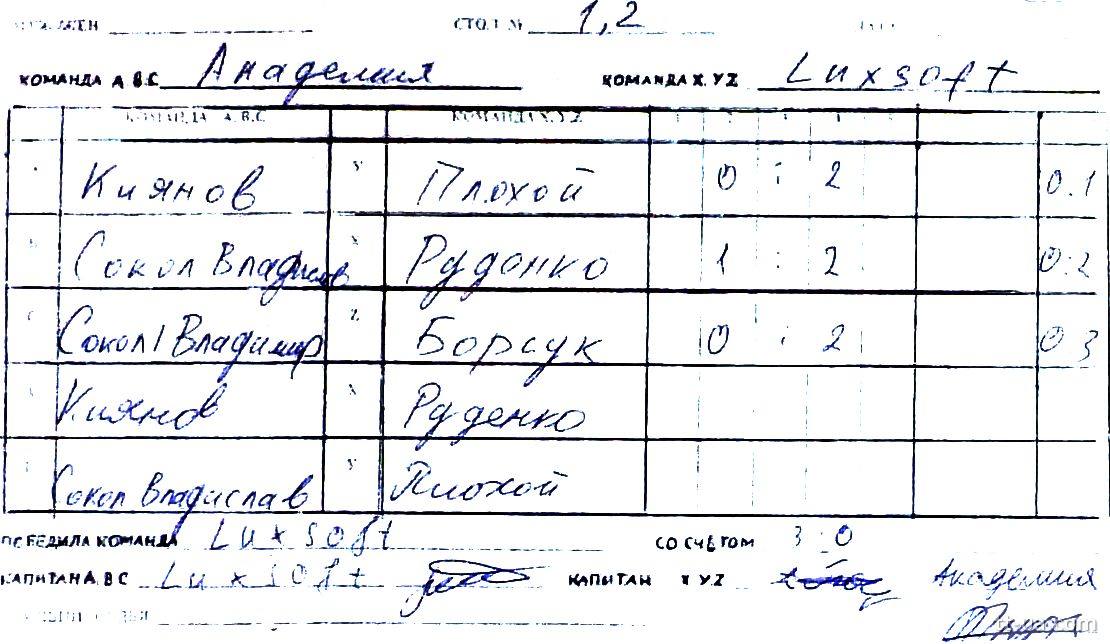 СТОЛ № 1,2
КОМАНДА А В.С. Академия КОМАНДА X.YZ Luxsoft
КОМАНДА А.В.С. КОМАНДА X.Y.Z
Киянов У Плохой 0 : 2 0.1
Сокол Владислав X Руденко 1 : 2 0:2
Сокол Владимир Z Борсук 0 : 2 0 3
Киянов X Руденко
Сокол Владислав У Плохой
ПОБЕДИЛА КОМАНДА Luxsoft СО СЧЕТОМ 3:0
КАПИТАН А.В С Luxsoft КАПИТАН X YZ Академия